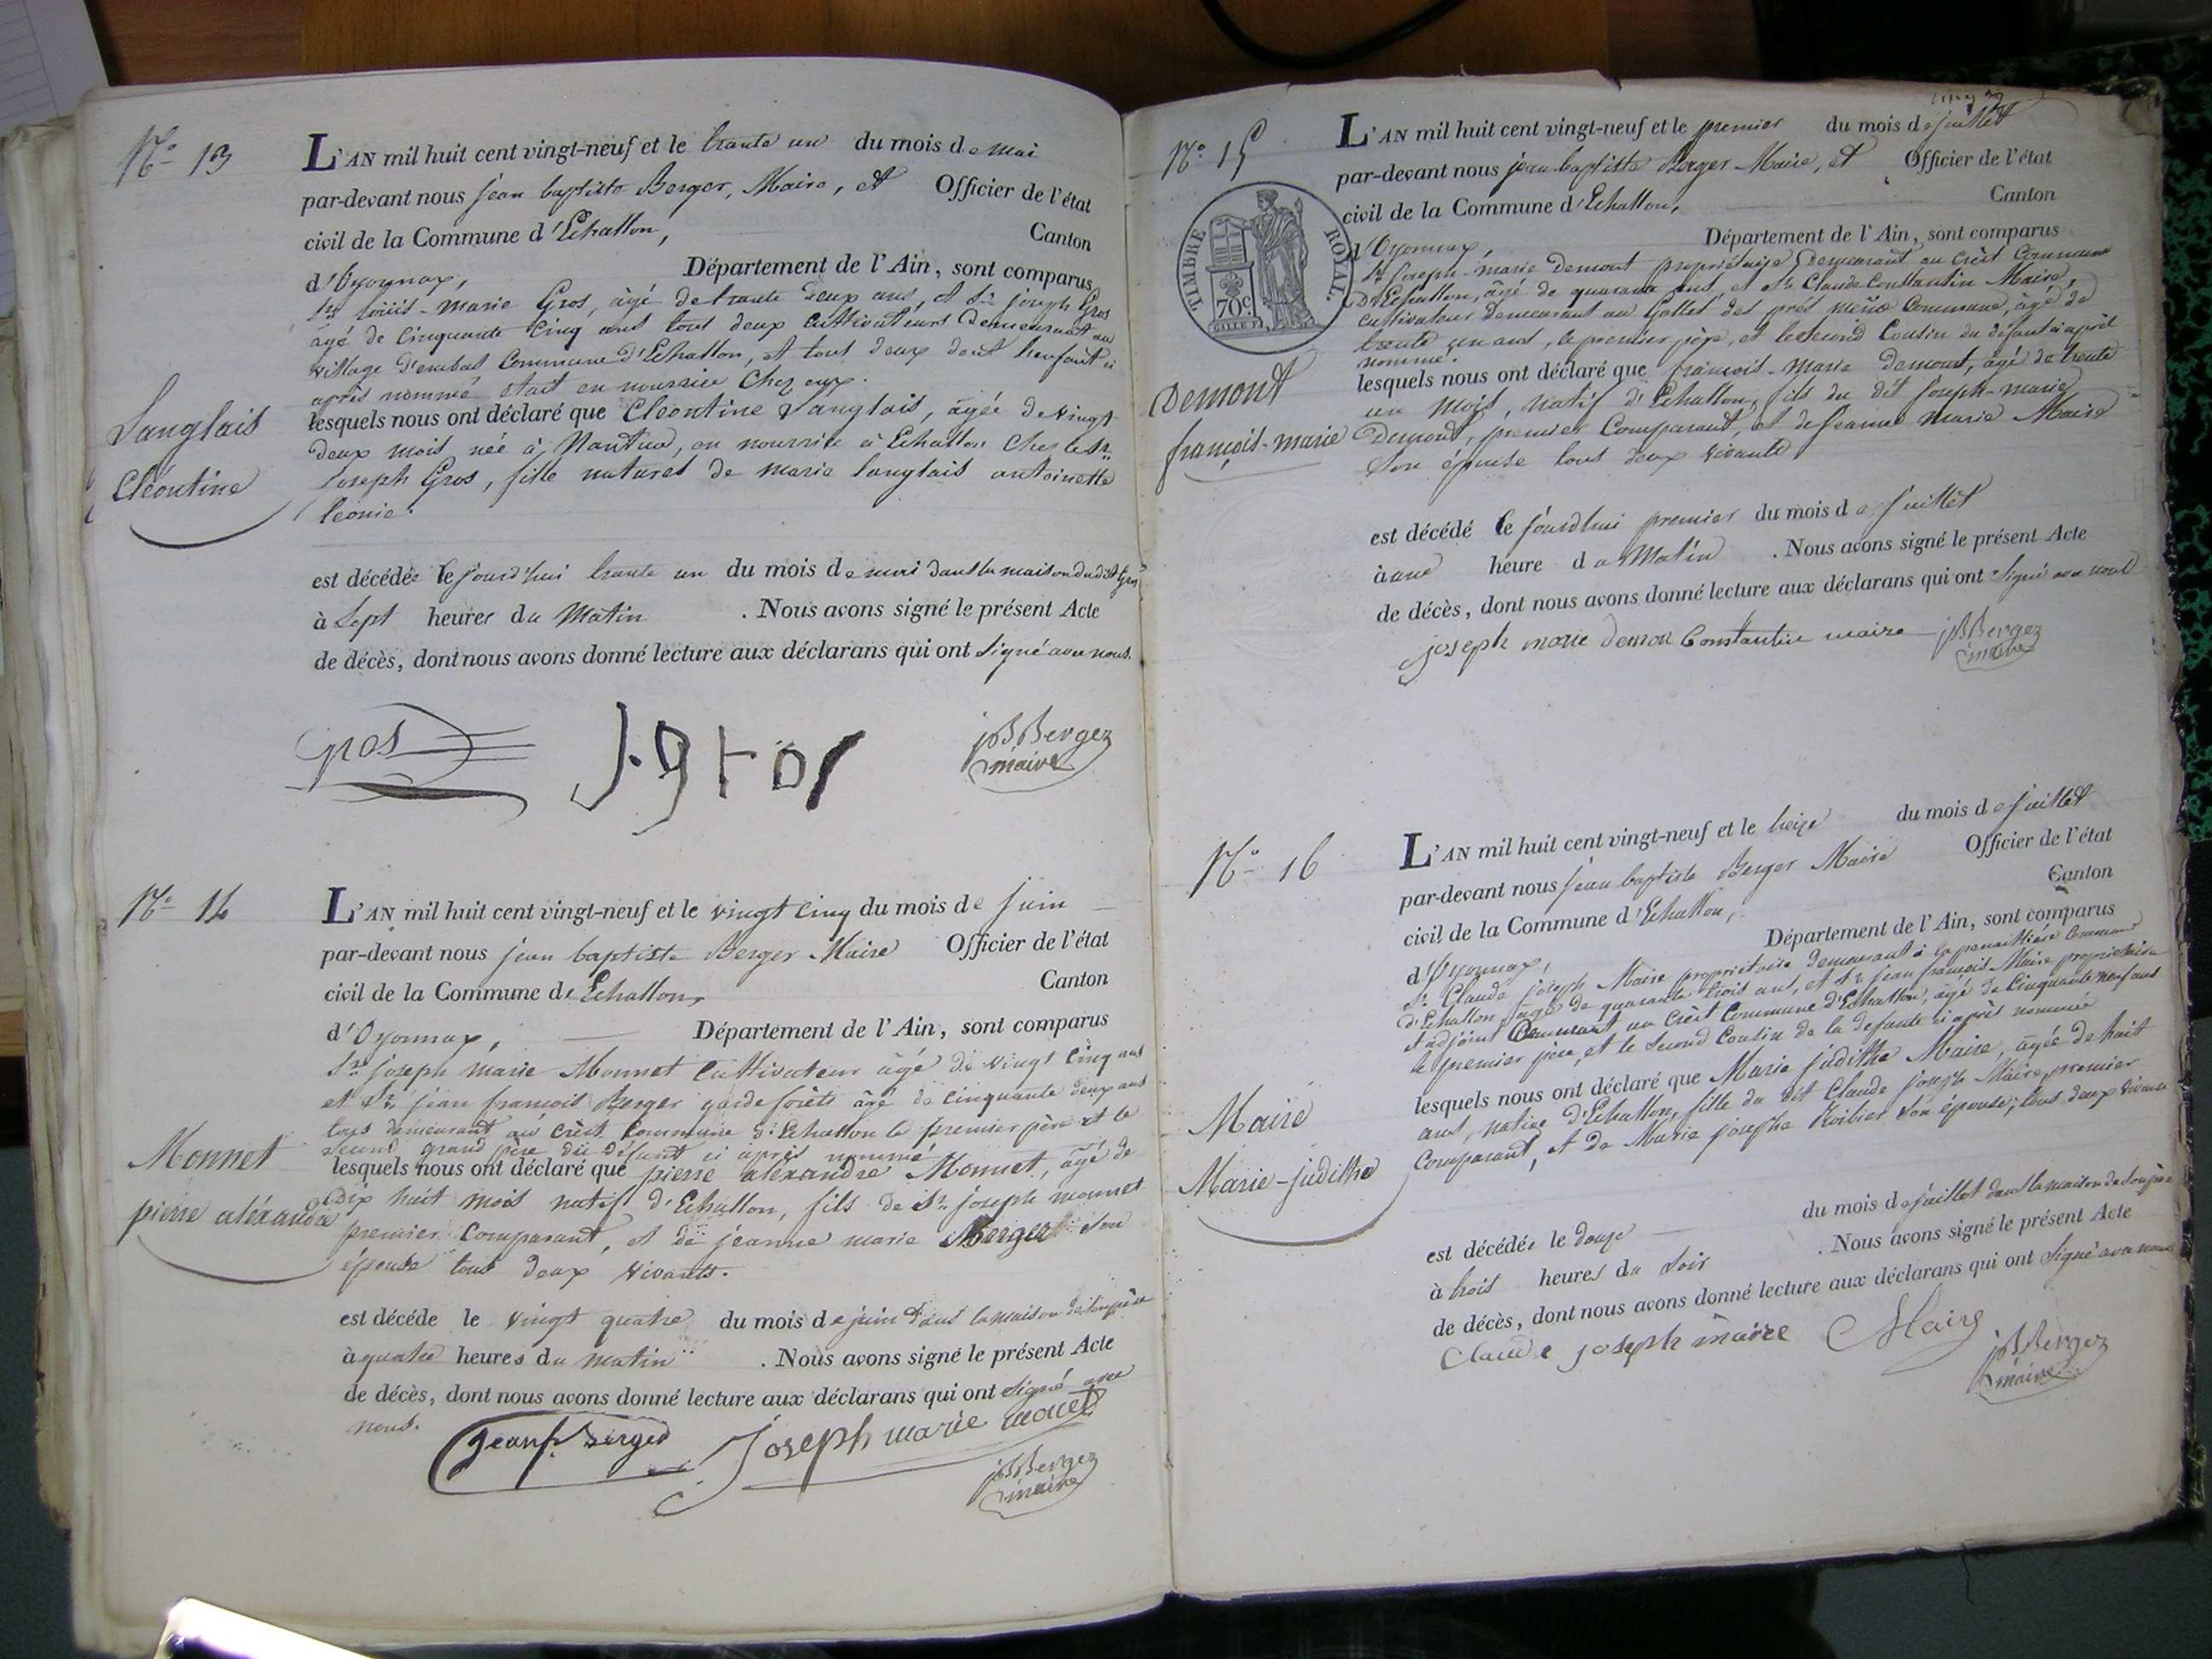 N.o 13
L'AN mil huit cent vingt-neuf et le trante un du mois de mai
par-devant nous jean baptiste Berger, Maire, et Officier de l'état
civil de la Commune d'Echallon, Canton
d'Oyonnax, Département de l'Ain, sont comparus
Sr. Louis-marie Gros, âgé de trante deux ans, et Sr. joseph Gros
âgé de cinquante cinq ans tous deux cultivateurs Demeurant au
village d'embas Commune d'Echallon, et tous deux dont l'enfant ci
après nommé était en nourrice chez eux.
lesquels nous ont déclaré que Cleontine Langlais, âgée de vingt
deux mois née à Nantua, en nourrice à Echallon chez le Sr.
Joseph Gros, fille naturel de marie langlais antoinette
leonie.
Langlais
Cléontine
est décédée le jourd'hui trante un du mois de mai dans la maison dudit Gros
à Sept heures du Matin . Nous avons signé le présent Acte
de décès, dont nous avons donné lecture aux déclarans qui ont Signé avec nous.
gros J.gros jB Berger
maire
N.o 14
L'AN mil huit cent vingt-neuf et le vingt cinq du mois de juin
par-devant nous jean baptiste Berger Maire Officier de l'état
civil de la Commune de Echallon, Canton
d'Oyonnax, Département de l'Ain, sont comparus
Sr. joseph marie Monnet Cultivateur âgé de vingt cinq ans
et Sr. jean francois Berger garde forêts âgé de cinquante deux ans
tous demeurant au crèt Commune d'Echallon le premier père et le
second grand père du défunt ci après nommé
lesquels nous ont déclaré que pierre aléxandre Monnet, âgé de
dix huit mois natif d'Echallon, fils de Sr. joseph monnet
premier Comparant, et de jeanne marie Berger son
épouse tous deux vivants.
Monnet
pierre aléxandre
est décédé le vingt quatre du mois de juin dans la maison de son père
à quatre heures du matin . Nous avons signé le présent Acte
de décès, dont nous avons donné lecture aux déclarans qui ont Signé avec
nous.
jean f. berger Joseph marie monet
jB Berger
maire
N.o 15
L'AN mil huit cent vingt-neuf et le premier du mois de juillet
par-devant nous jean baptiste Berger Maire, et Officier de l'état
civil de la Commune d'Echallon, Canton
d'Oyonnax, Département de l'Ain, sont comparus
TIMBRE ROYAL.
70c.
Sr. Joseph-marie Demont propriétaire Demeurant au crèt Commune
D'Echallon, âgé de quarante ans, et Sr. Claude Constantin Maire,
cultivateur Demeurant au Gollet des prés même Commune, âgé de
trente un ans, le premier père, et le second Cousin du défunt ci après
nommé.
lesquels nous ont déclaré que françois-Marie Demont, âgé de trente
un mois, natif d'Echallon, fils du dit Joseph-marie
Demont, premier Comparant, et de Jeanne Marie Maire
Son épouse tous deux vivants
Demont
françois-marie
est décédé le jourd'hui premier du mois de juillet
à une heure du Matin . Nous avons signé le présent Acte
de décès, dont nous avons donné lecture aux déclarans qui ont Signé avec nous
joseph marie demon Constantin maire jB Berger
maire
N.o 16
L'AN mil huit cent vingt-neuf et le treize du mois de juillet
par-devant nous jean baptiste Berger Maire Officier de l'état
civil de la Commune d'Echallon, Canton
d'Oyonnax, Département de l'Ain, sont comparus
Sr. Claude joseph Maire propriétaire demeurant à la Commune
d'Echallon âgé de quarante trois ans, et Sr. jean françois Maire propriétaire
et adjoint Demeurant au Crèt Commune d'Echallon, âgé de Cinquante neuf ans
le premier père, et le Second Cousin de la défunte ci après nommée
lesquels nous ont déclaré que Marie judithe Maire, âgée de huit
ans, native D'Echallon, fille du dit Claude joseph Maire, premier
Comparant, et de Marie josephe Roibier son épouse; tous deux vivants
Maire
Marie-judithe
est décédée le douze du mois de juillet dans la maison de son père
à trois heures du Soir . Nous avons signé le présent Acte
de décès, dont nous avons donné lecture aux déclarans qui ont Signé avec nous
Claude joseph maire Maire jB Berger
maire